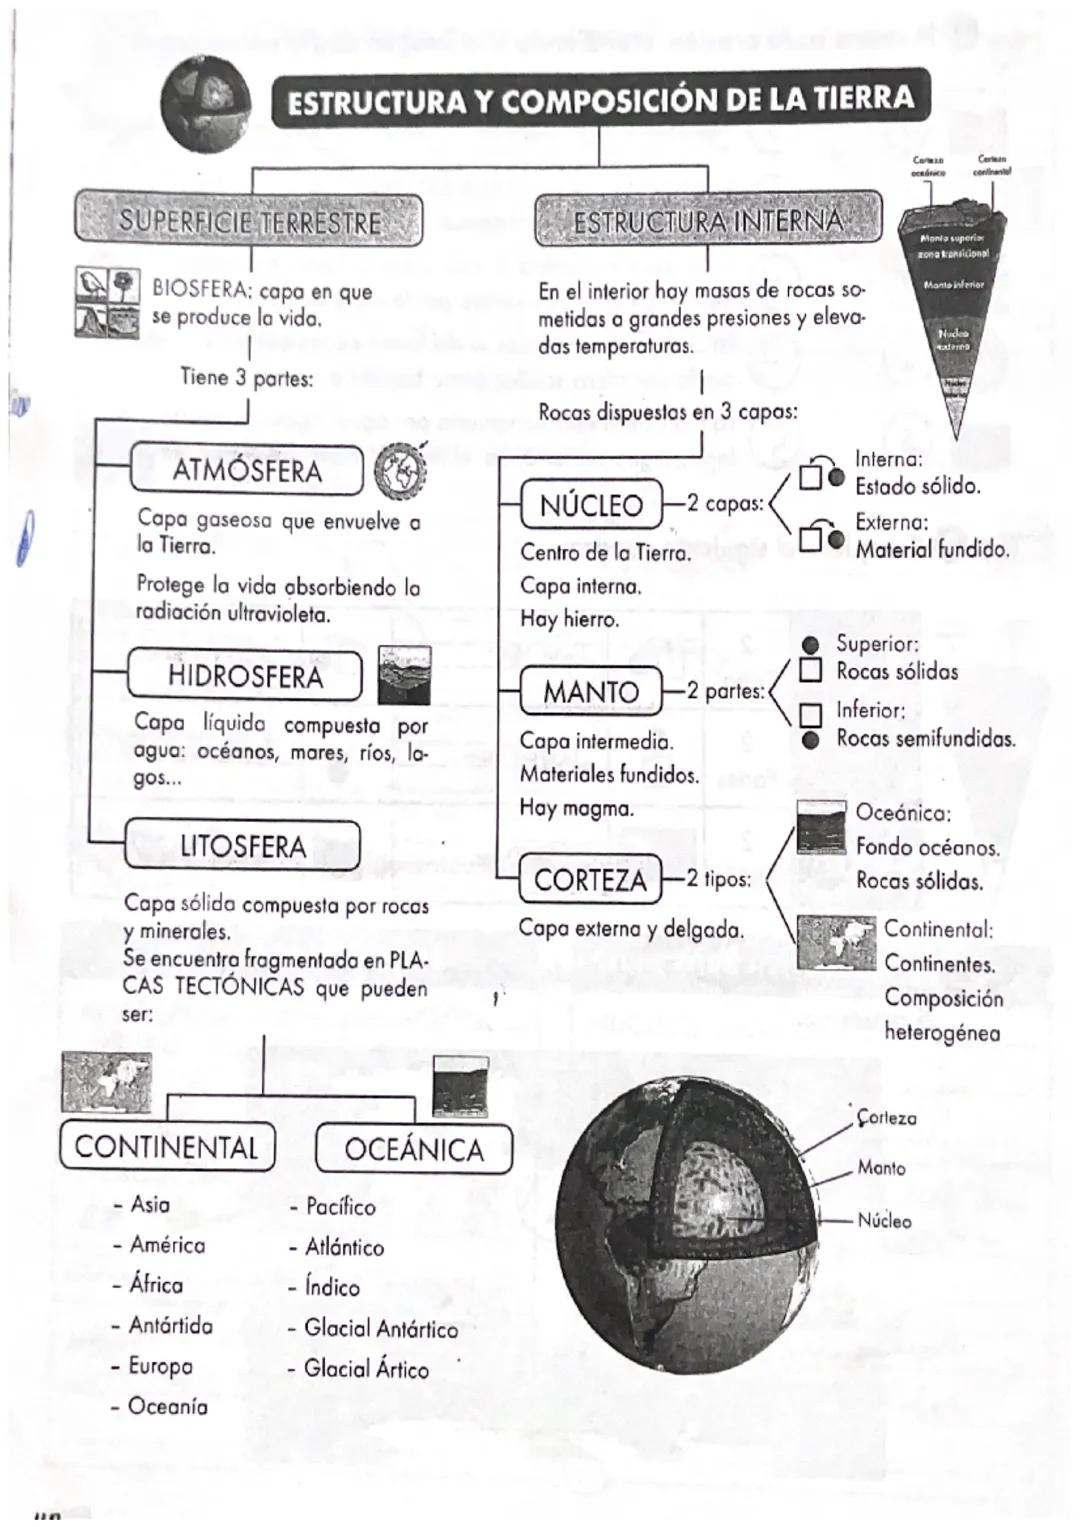 ESTRUCTURA Y COMPOSICIÓN DE LA TIERRA
SUPERFICIE TERRESTRE
BIOSFERA: capa en que
se produce la vida.
Tiene 3 partes:
ATMÓSFERA
Capa gaseosa que envuelve a
la Tierra.
Protege la vida absorbiendo la
radiación ultravioleta.
HIDROSFERA
Capa líquida compuesta por
agua: océanos, mares, ríos, la-
gos...
LITOSFERA
Capa sólida compuesta por rocas
y minerales.
Se encuentra fragmentada en PLA-
CAS TECTÓNICAS que pueden
ser:
CONTINENTAL
- Asia
- América
- África
- Antártida
- Europa
- Oceanía
OCEÁNICA
- Pacífico
- Atlántico
- Índico
- Glacial Antártico
- Glacial Ártico
ESTRUCTURA INTERNA
En el interior hay masas de rocas so-
metidas a grandes presiones y eleva-
das temperaturas.
Rocas dispuestas en 3 capas:
NÚCLEO
2 capas:
Interna:
Estado sólido.
Externa:
Material fundido.
Centro de la Tierra.
Capa interna.
Hay hierro.
MANTO
2 partes:
Superior:
Rocas sólidas
Inferior:
Rocas semifundidas.
Capa intermedia.
Materiales fundidos.
Hay magma.
CORTEZA
2 tipos:
Oceánica:
Fondo océanos.
Rocas sólidas.
Continental:
Continentes.
Composición
heterogénea
Capa externa y delgada.
Corteza
oceánica
Corteza
continental
Manto superior
zona transicional
Manto inferior
Núcleo
externo
Núcleo
Corteza
Manto
Núcleo